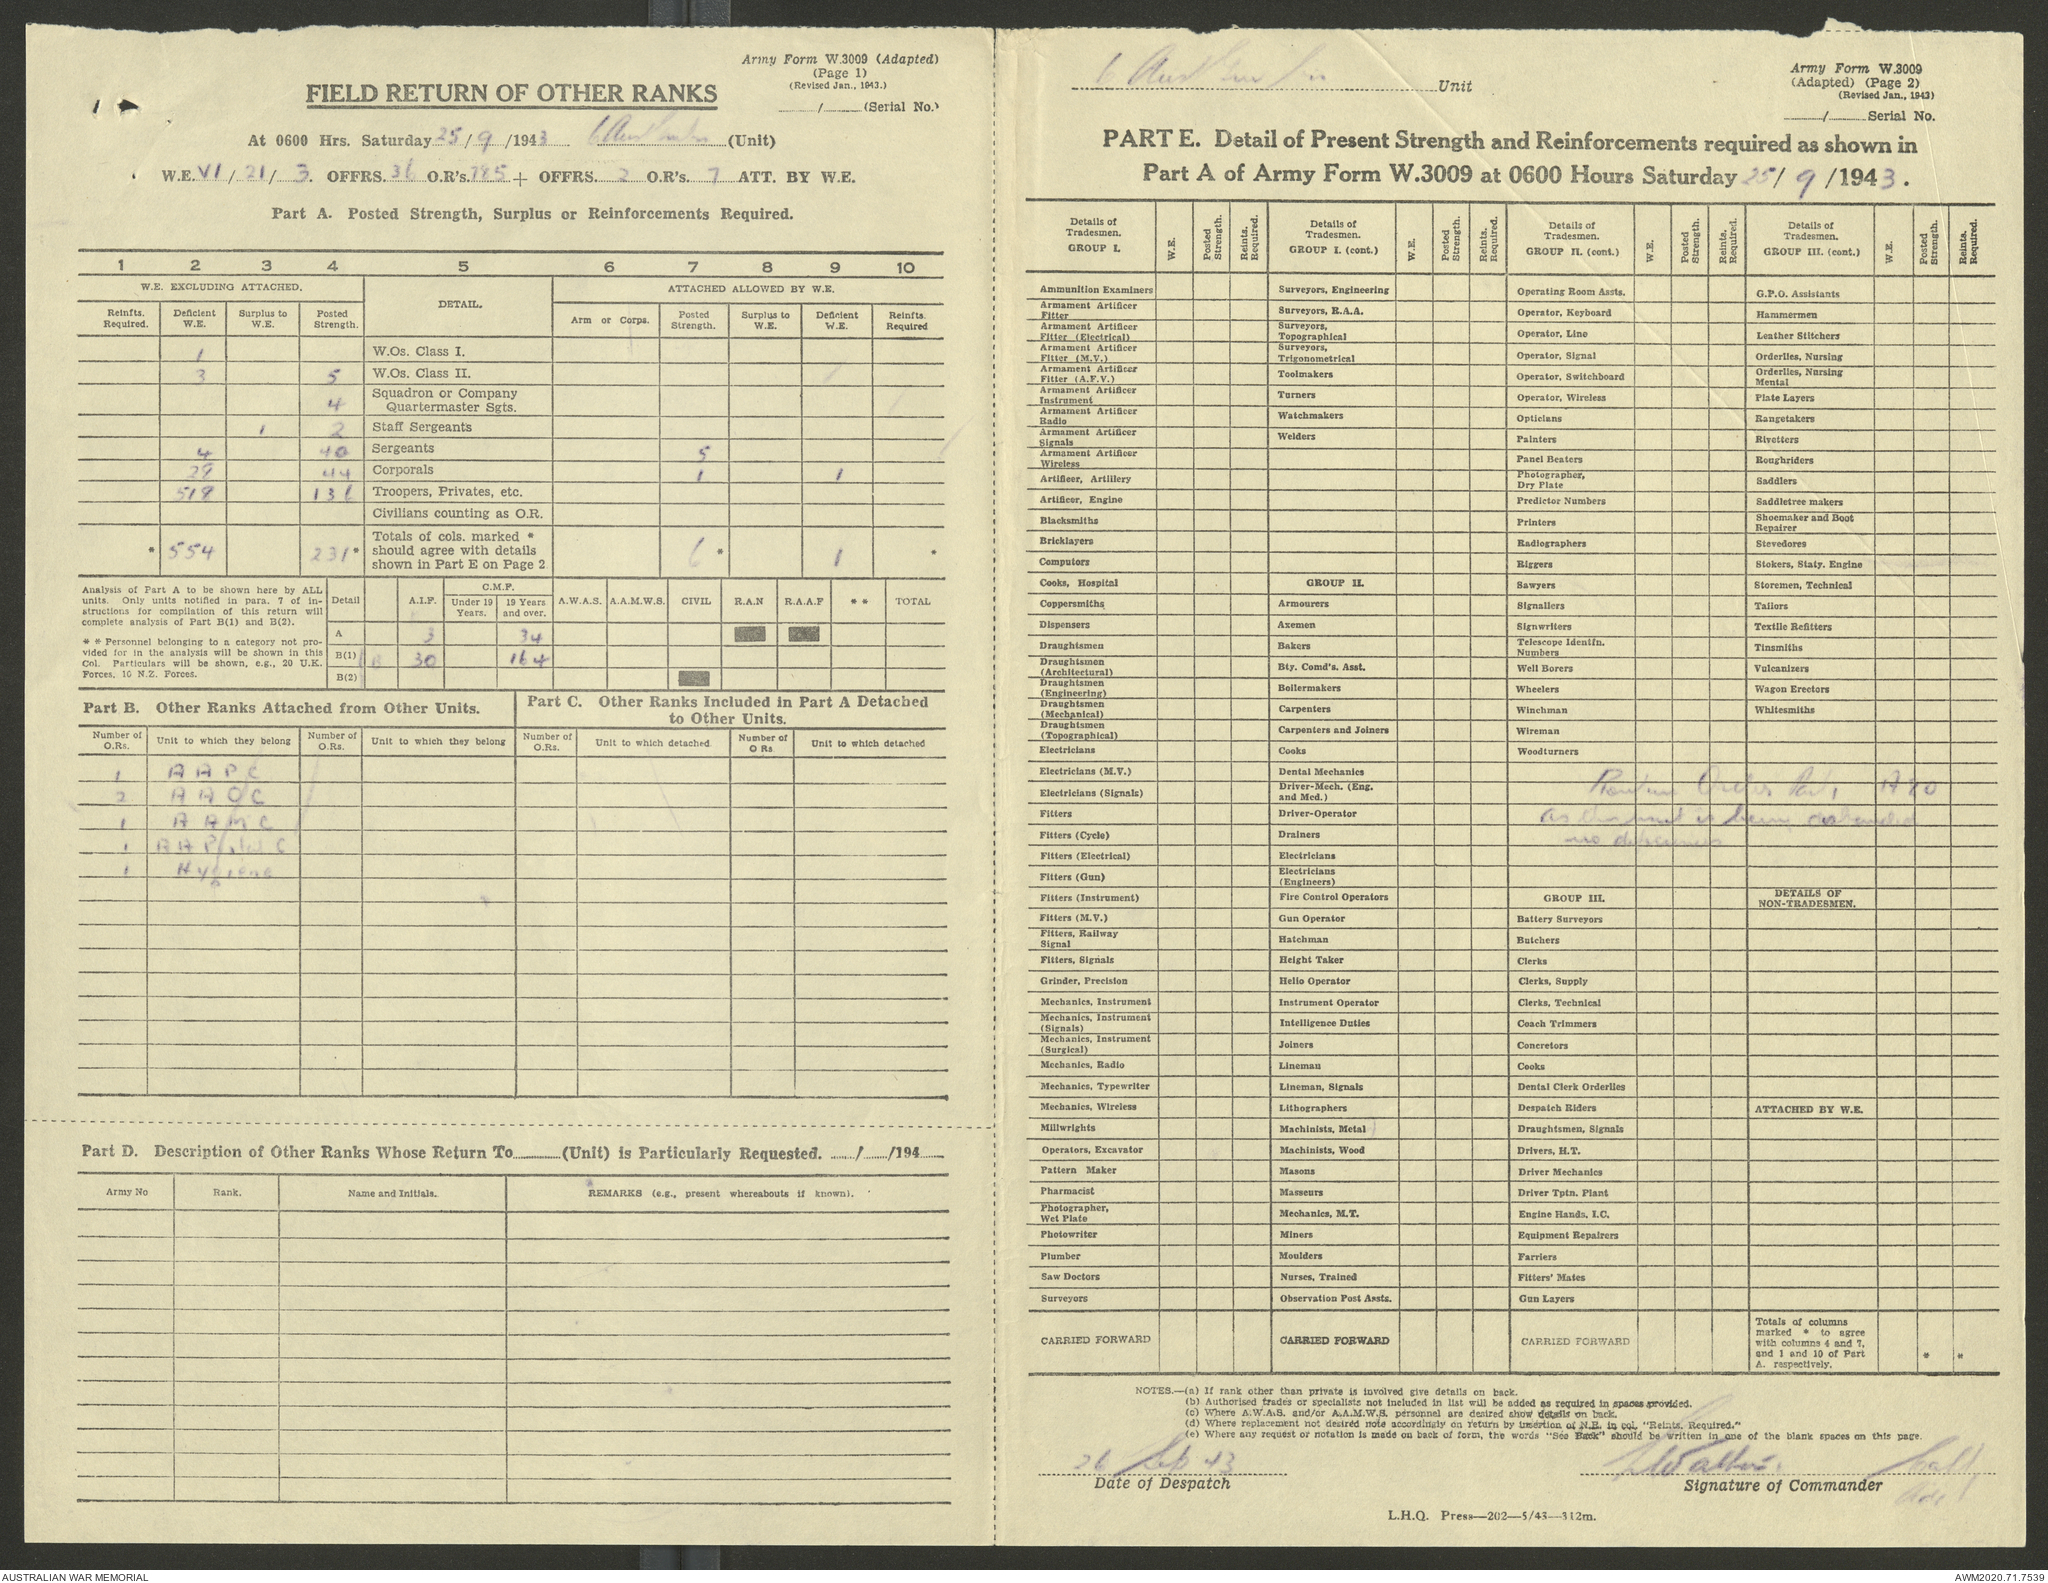 Army Form W.3009 (Adapted)
(Page 1)
(Revised Jan., 1943.)
FIELD RETURN OF OTHER RANKS
/ (Serial No.)
At 0600 Hrs. Saturday 25/9/1943 6 Aust (Unit)
W.E. VI/21/3. OFFRS. 36 O.R's. 785 + OFFRS. 2 O.R's. 7 ATT. BY W.E.
Part A. Posted Strength, Surplus or Reinforcements Required.
1 2 3 4 5 6 7 8 9 10
W.E. EXCLUDING ATTACHED. DETAIL. ATTACHED ALLOWED BY W.E.
Reinfts. Required. Deficient W.E. Surplus to W.E. Posted Strength. Arm or Corps. Posted Strength. Surplus to W.E. Deficient W.E. Reinfts. Required
1 W.Os. Class I.
3 5 W.Os. Class II.
4 Squadron or Company Quartermaster Sgts.
1 2 Staff Sergeants
4 40 Sergeants 5
28 44 Corporals 1 1
518 136 Troopers, Privates, etc.
Civilians counting as O.R.
* 554 231* Totals of cols. marked * should agree with details shown in Part E on Page 2 6 * 1 *
Analysis of Part A to be shown here by ALL units. Only units notified in para. 7 of instructions for compilation of this return will complete analysis of Part B(1) and B(2).
* * Personnel belonging to a category not provided for in the analysis will be shown in this Col. Particulars will be shown, e.g., 20 U.K. Forces, 10 N.Z. Forces.
Detail A.I.F. C.M.F. Under 19 Years. 19 Years and over. A.W.A.S. A.A.M.W.S. CIVIL R.A.N R.A.A.F * * TOTAL
A 3 34
B(1) 30 164
B(2)
Part B. Other Ranks Attached from Other Units.
Part C. Other Ranks Included in Part A Detached to Other Units.
Number of O.Rs. Unit to which they belong Number of O.Rs. Unit to which they belong Number of O.Rs. Unit to which detached. Number of O Rs Unit to which detached
1 A A P C
2 A A O C
1 A A M C
1 A A Postal C
1 Hygiene
Part D. Description of Other Ranks Whose Return To (Unit) is Particularly Requested. / /194
Army No Rank. Name and Initials. REMARKS (e.g., present whereabouts if known).
6 Aust Unit
Army Form W.3009
(Adapted) (Page 2)
(Revised Jan., 1943)
/ Serial No.
PART E. Detail of Present Strength and Reinforcements required as shown in
Part A of Army Form W.3009 at 0600 Hours Saturday 25/9/1943.
Details of Tradesmen. GROUP I. W.E. Posted Strength. Reints. Required.
Ammunition Examiners
Armament Artificer Fitter
Armament Artificer Fitter (Electrical)
Armament Artificer Fitter (M.V.)
Armament Artificer Fitter (A.F.V.)
Armament Artificer Instrument
Armament Artificer Radio
Armament Artificer Signals
Armament Artificer Wireless
Artificer, Artillery
Artificer, Engine
Blacksmiths
Bricklayers
Computors
Cooks, Hospital
Coppersmiths
Dispensers
Draughtsmen
Draughtsmen (Architectural)
Draughtsmen (Engineering)
Draughtsmen (Mechanical)
Draughtsmen (Topographical)
Electricians
Electricians (M.V.)
Electricians (Signals)
Fitters
Fitters (Cycle)
Fitters (Electrical)
Fitters (Gun)
Fitters (Instrument)
Fitters (M.V.)
Fitters, Railway Signal
Fitters, Signals
Grinder, Precision
Mechanics, Instrument
Mechanics, Instrument (Signals)
Mechanics, Instrument (Surgical)
Mechanics, Radio
Mechanics, Typewriter
Mechanics, Wireless
Millwrights
Operators, Excavator
Pattern Maker
Pharmacist
Photographer, Wet Plate
Photowriter
Plumber
Saw Doctors
Surveyors
CARRIED FORWARD
Details of Tradesmen. GROUP I. (cont.) W.E. Posted Strength. Reints. Required.
Surveyors, Engineering
Surveyors, R.A.A.
Surveyors, Topographical
Surveyors, Trigonometrical
Toolmakers
Turners
Watchmakers
Welders
GROUP II.
Armourers
Axemen
Bakers
Bty. Comd's. Asst.
Boilermakers
Carpenters
Carpenters and Joiners
Cooks
Dental Mechanics
Driver-Mech. (Eng. and Med.)
Driver-Operator
Drainers
Electricians
Electricians (Engineers)
Fire Control Operators
Gun Operator
Hatchman
Height Taker
Helio Operator
Instrument Operator
Intelligence Duties
Joiners
Lineman
Lineman, Signals
Lithographers
Machinists, Metal
Machinists, Wood
Masons
Masseurs
Mechanics, M.T.
Miners
Moulders
Nurses, Trained
Observation Post Assts.
CARRIED FORWARD
Details of Tradesmen. GROUP II. (cont.) W.E. Posted Strength. Reints. Required.
Operating Room Assts.
Operator, Keyboard
Operator, Line
Operator, Signal
Operator, Switchboard
Operator, Wireless
Opticians
Painters
Panel Beaters
Photographer, Dry Plate
Predictor Numbers
Printers
Radiographers
Riggers
Sawyers
Signallers
Signwriters
Telescope Identfn. Numbers
Well Borers
Wheelers
Winchman
Wireman
Woodturners
Routine Orders Part 1 A80
as this unit is being disbanded
no deficiencies
GROUP III.
Battery Surveyors
Butchers
Clerks
Clerks, Supply
Clerks, Technical
Coach Trimmers
Concretors
Cooks
Dental Clerk Orderlies
Despatch Riders
Draughtsmen, Signals
Drivers, H.T.
Driver Mechanics
Driver Tptn. Plant
Engine Hands, I.C.
Equipment Repairers
Farriers
Fitters' Mates
Gun Layers
CARRIED FORWARD
Details of Tradesmen. GROUP III. (cont.) W.E. Posted Strength. Reints. Required.
G.P.O. Assistants
Hammermen
Leather Stitchers
Orderlies, Nursing
Orderlies, Nursing Mental
Plate Layers
Rangetakers
Rivetters
Roughriders
Saddlers
Saddletree makers
Shoemaker and Boot Repairer
Stevedores
Stokers, Staty. Engine
Storemen, Technical
Tailors
Textile Refitters
Tinsmiths
Vulcanizers
Wagon Erectors
Whitesmiths
DETAILS OF NON-TRADESMEN.
ATTACHED BY W.E.
Totals of columns marked * to agree with columns 4 and 7, and 1 and 10 of Part A. respectively. * *
NOTES.—(a) If rank other than private is involved give details on back.
(b) Authorised trades or specialists not included in list will be added as required in spaces provided.
(c) Where A.W.A.S. and/or A.A.M.W.S. personnel are desired show details on back.
(d) Where replacement not desired note accordingly on return by insertion of N.R. in col. "Reints. Required."
(e) Where any request or notation is made on back of form, the words "See Back" should be written in one of the blank spaces on this page.
26 Sep 43
Date of Despatch
Signature of Commander
L.H.Q. Press—202—5/43—312m.
AUSTRALIAN WAR MEMORIAL
AWM2020.71.7539